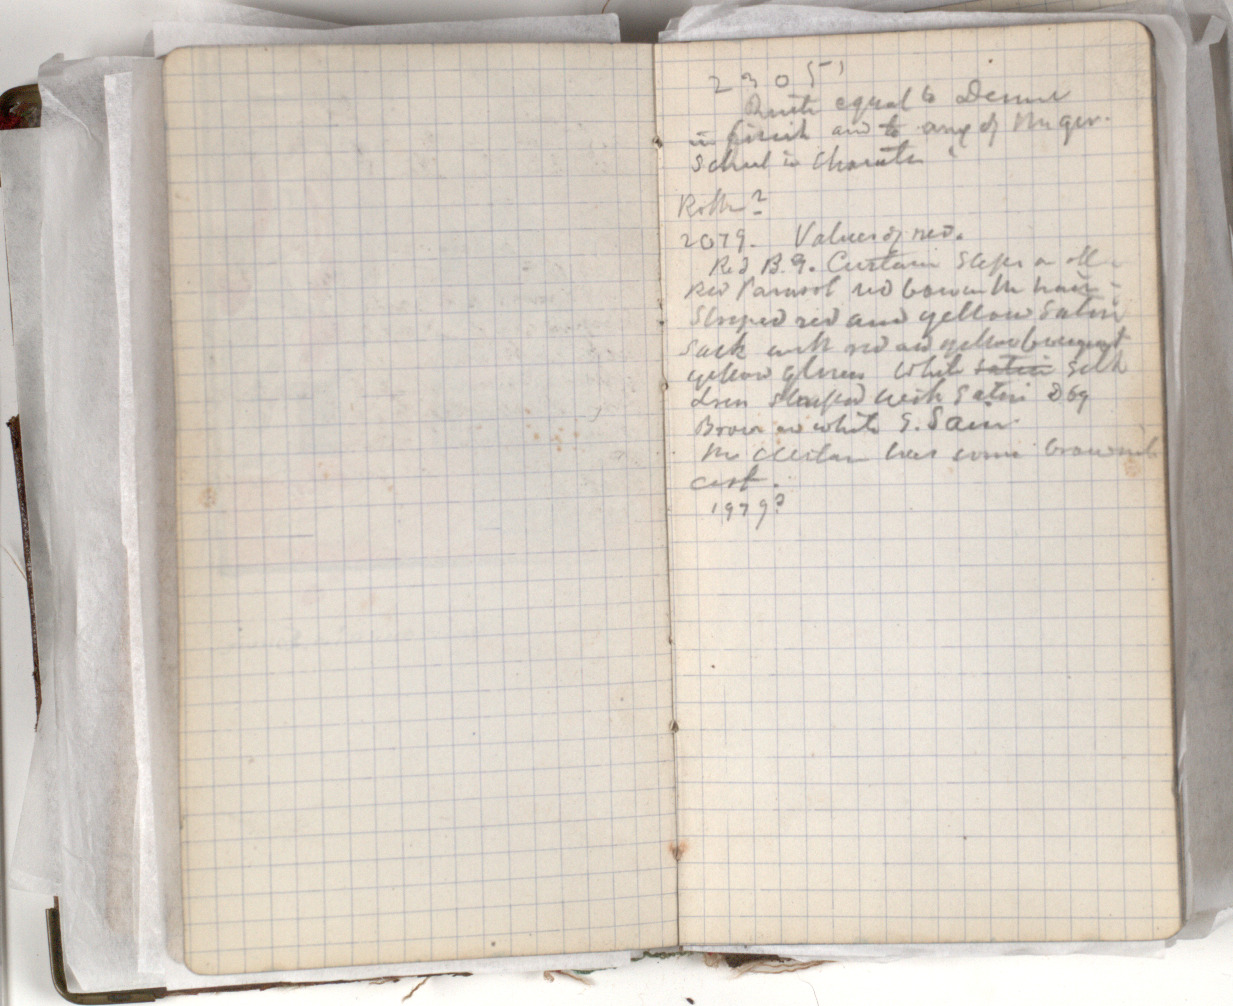 2305
Quite equal to Denner
in finish and to any of the ger.
School in Character
Roth?
2079. Values of red.
Red B.G. Curtain
Red Parasol red bow in the hair
Striped red and yellow Satin
Sack with red and yellow bouquet
yellow gloves white satin Silk
dress striped with Satin Dog
Brown and white S.
The has some brownish
cast.
1979?